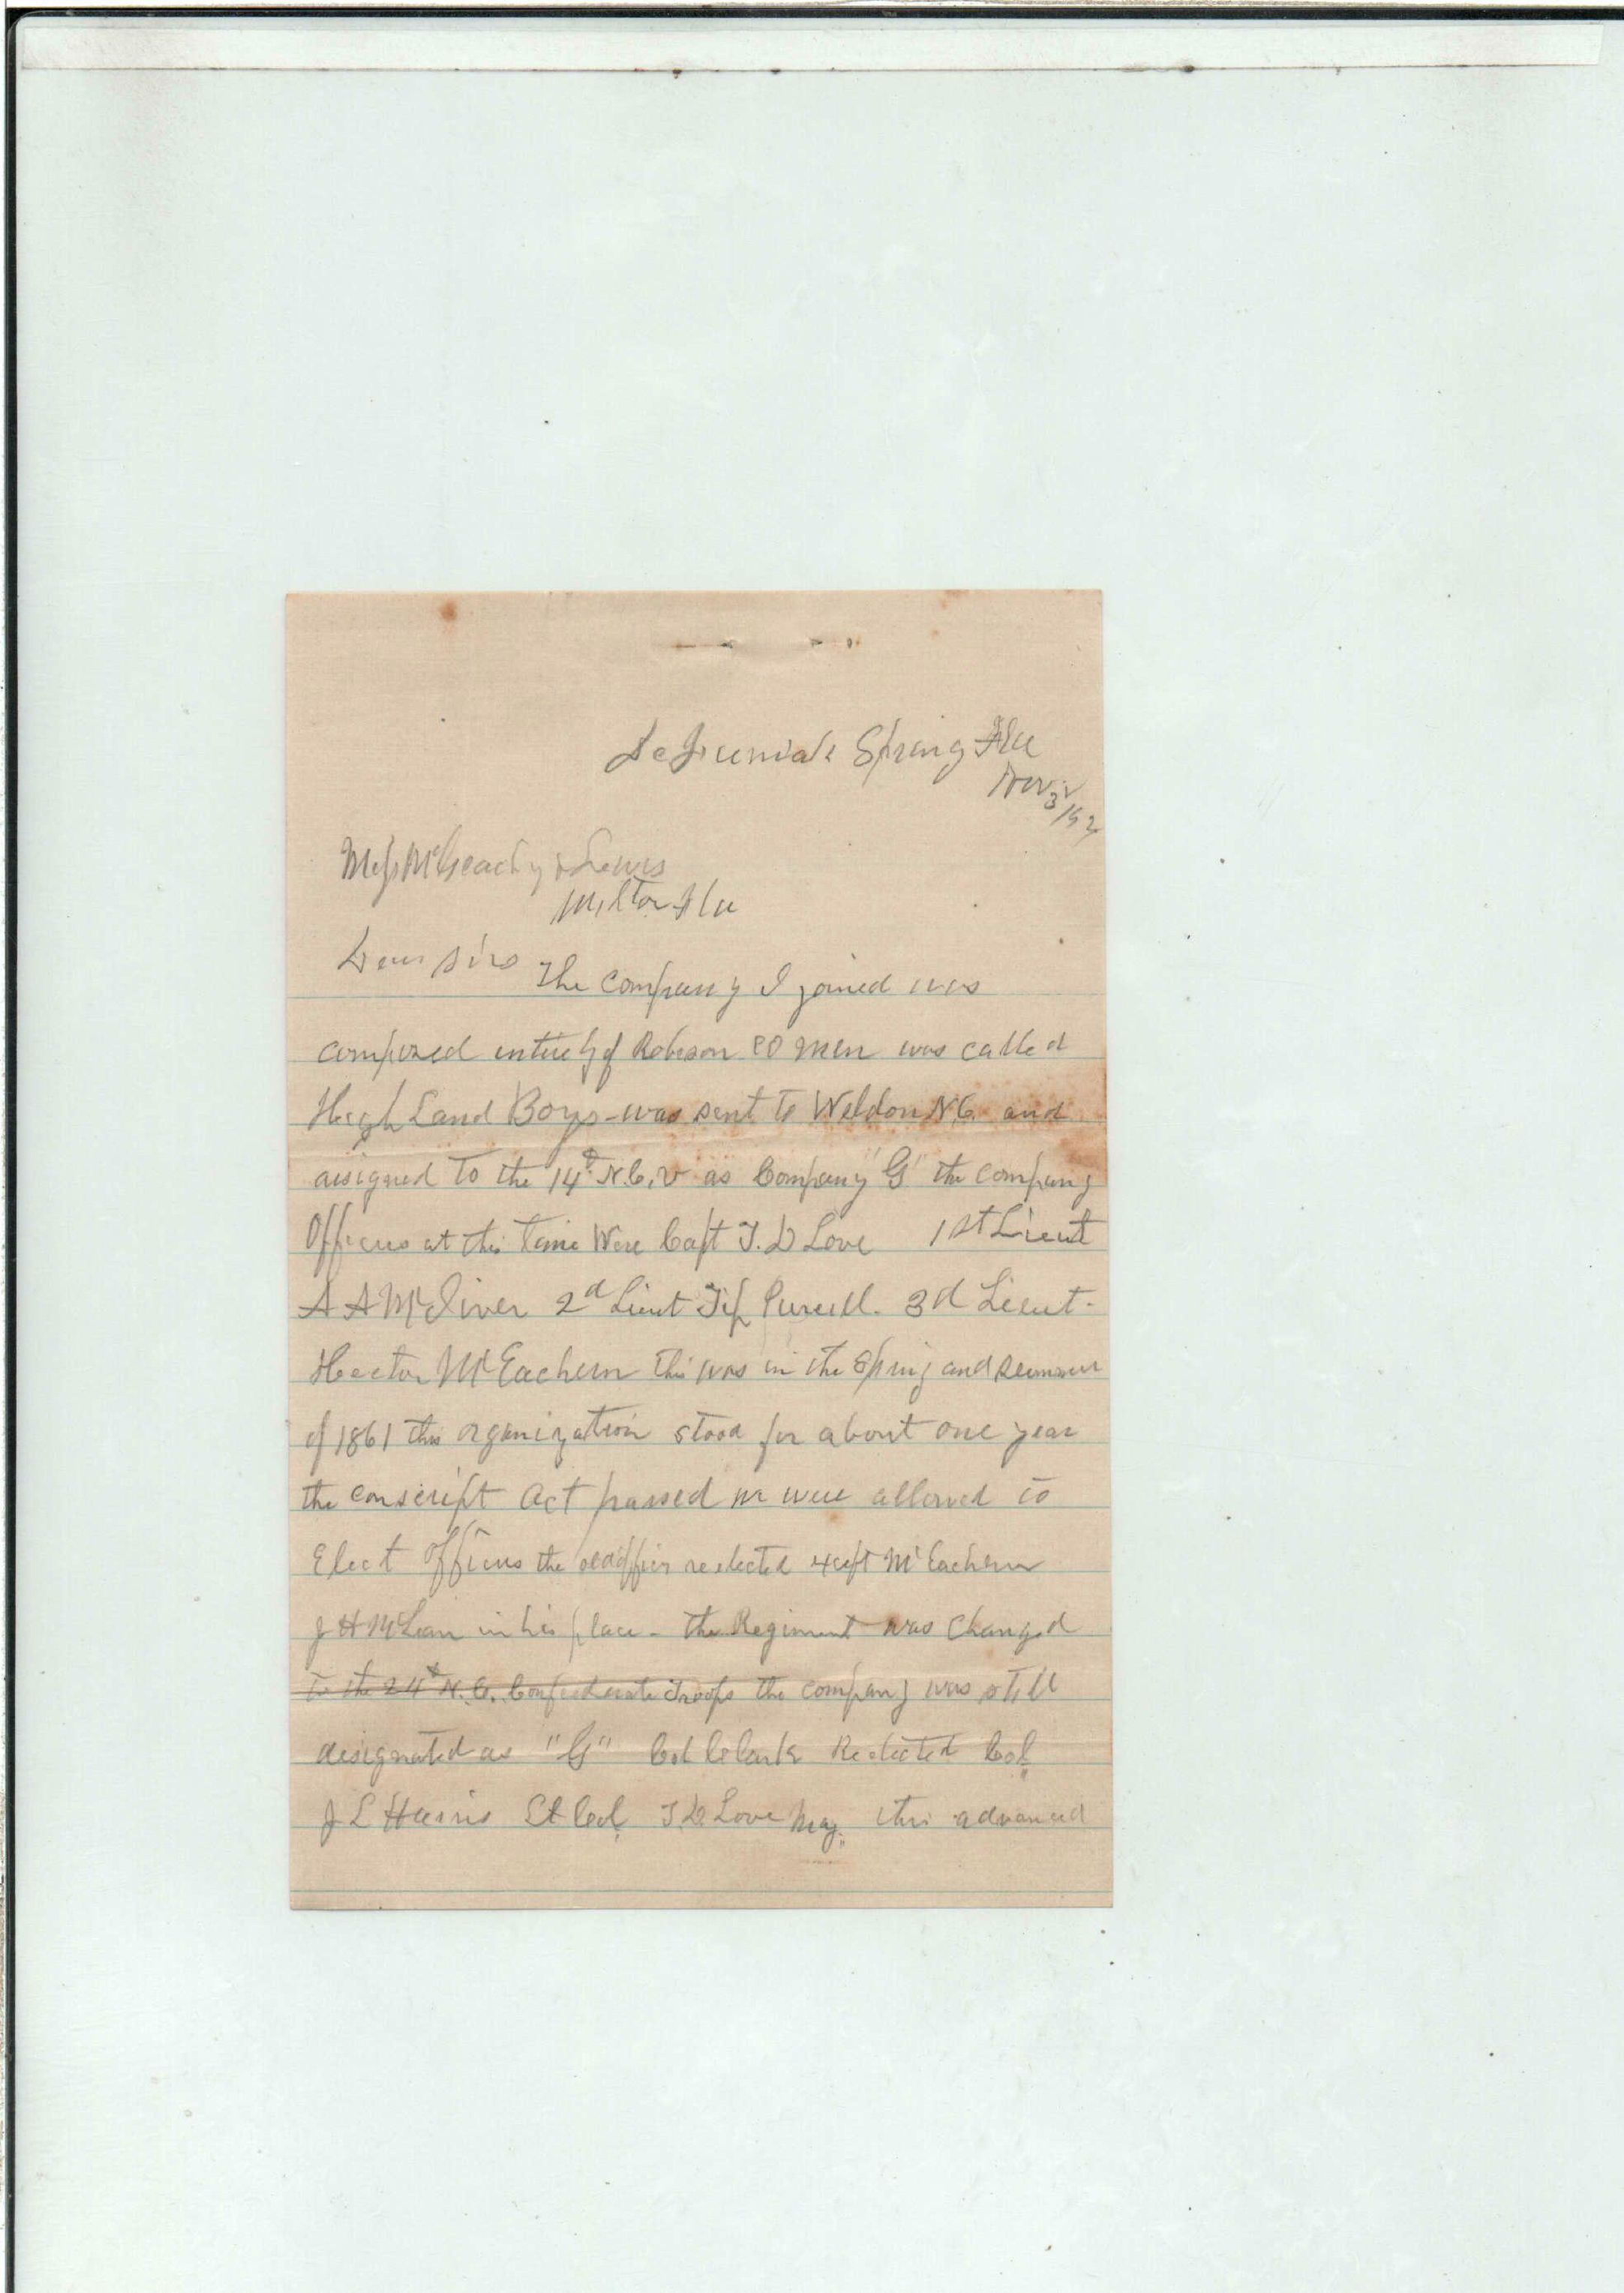 DeFuniak Spring Fla
Nov 3
Mess McGeachy & Lewis
Milton Fla
Dear Sirs The Company I joined was
composed entirely of Robeson CO men was called
High Land Boys - was sent to Weldon N.C. and
assigned to the 14th N.C.V as Company "G" the company
Officers at this time Were Capt T. D Love 1st Lieut
A A McIver 2d Lieut Purcell. 3d Lieut-
Hector McEachern this was in the Spring and Summer
of 1861 this organization stood for about one year
the conscript Act passed we were allowed to
Elect Officers the old officers reelected except McEachern
J H McLean in his place - the Regiment was Changed
to the 24th N.C. Confederate Troops the company was still
designated as "G" Col Clark Reelected Col.
J L Harris Lt Col. T.D. Love Maj. this advanced